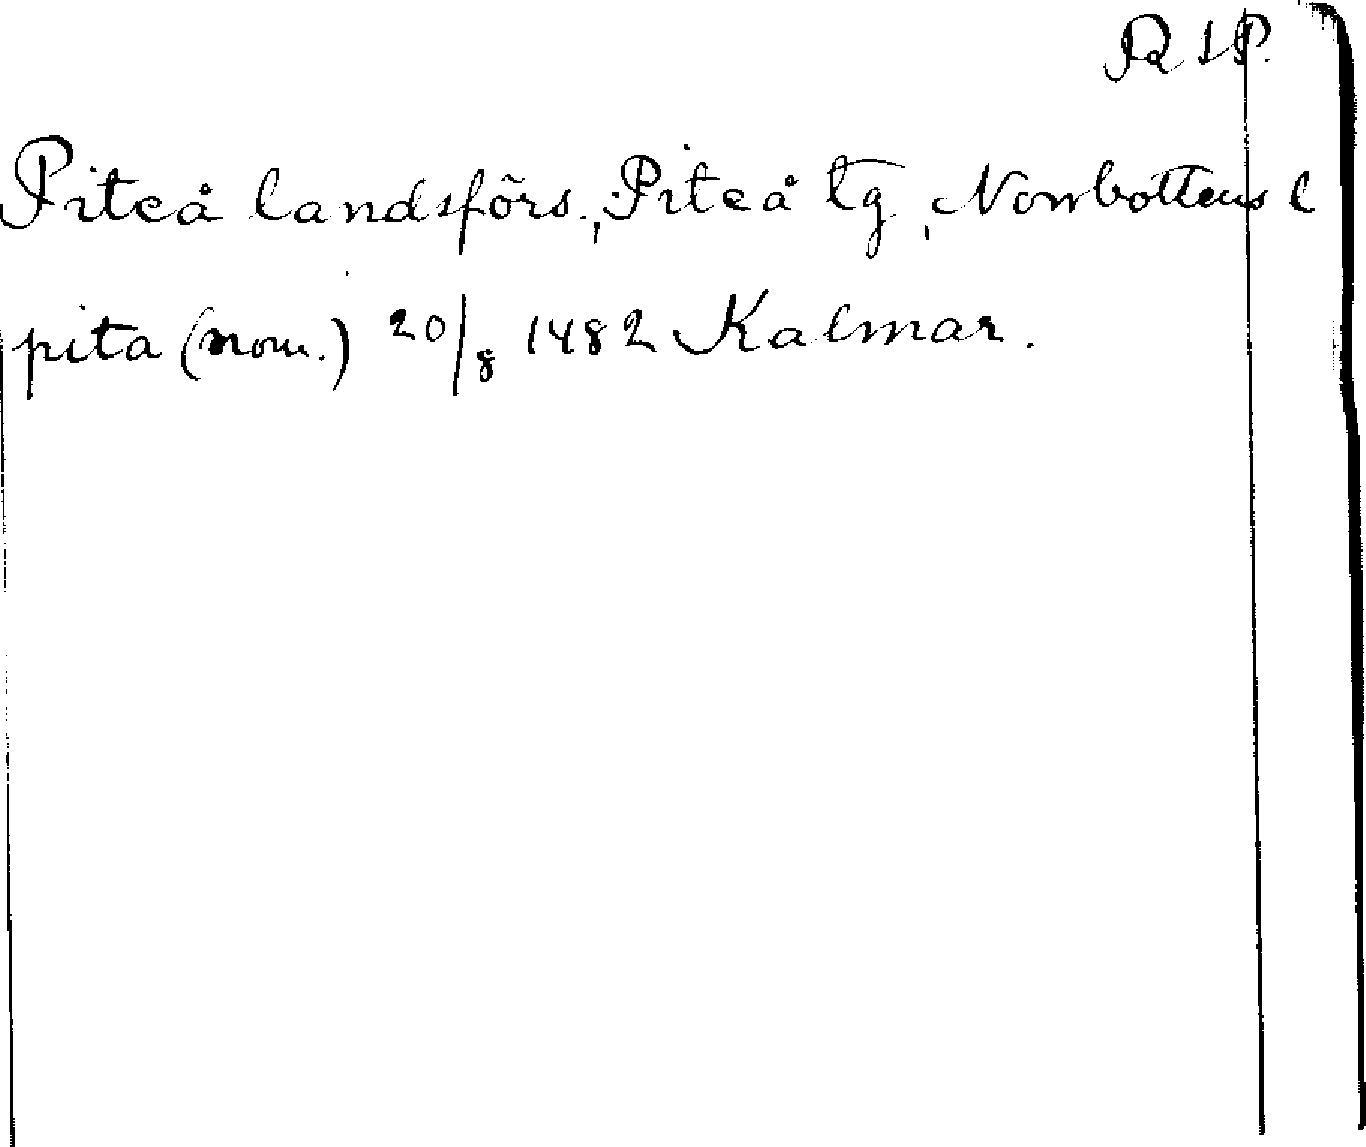 RAP.
Piteå landsförs., Piteå tg, Norrbottens l
pita (nom.) 20/8 1482 Kalmar.